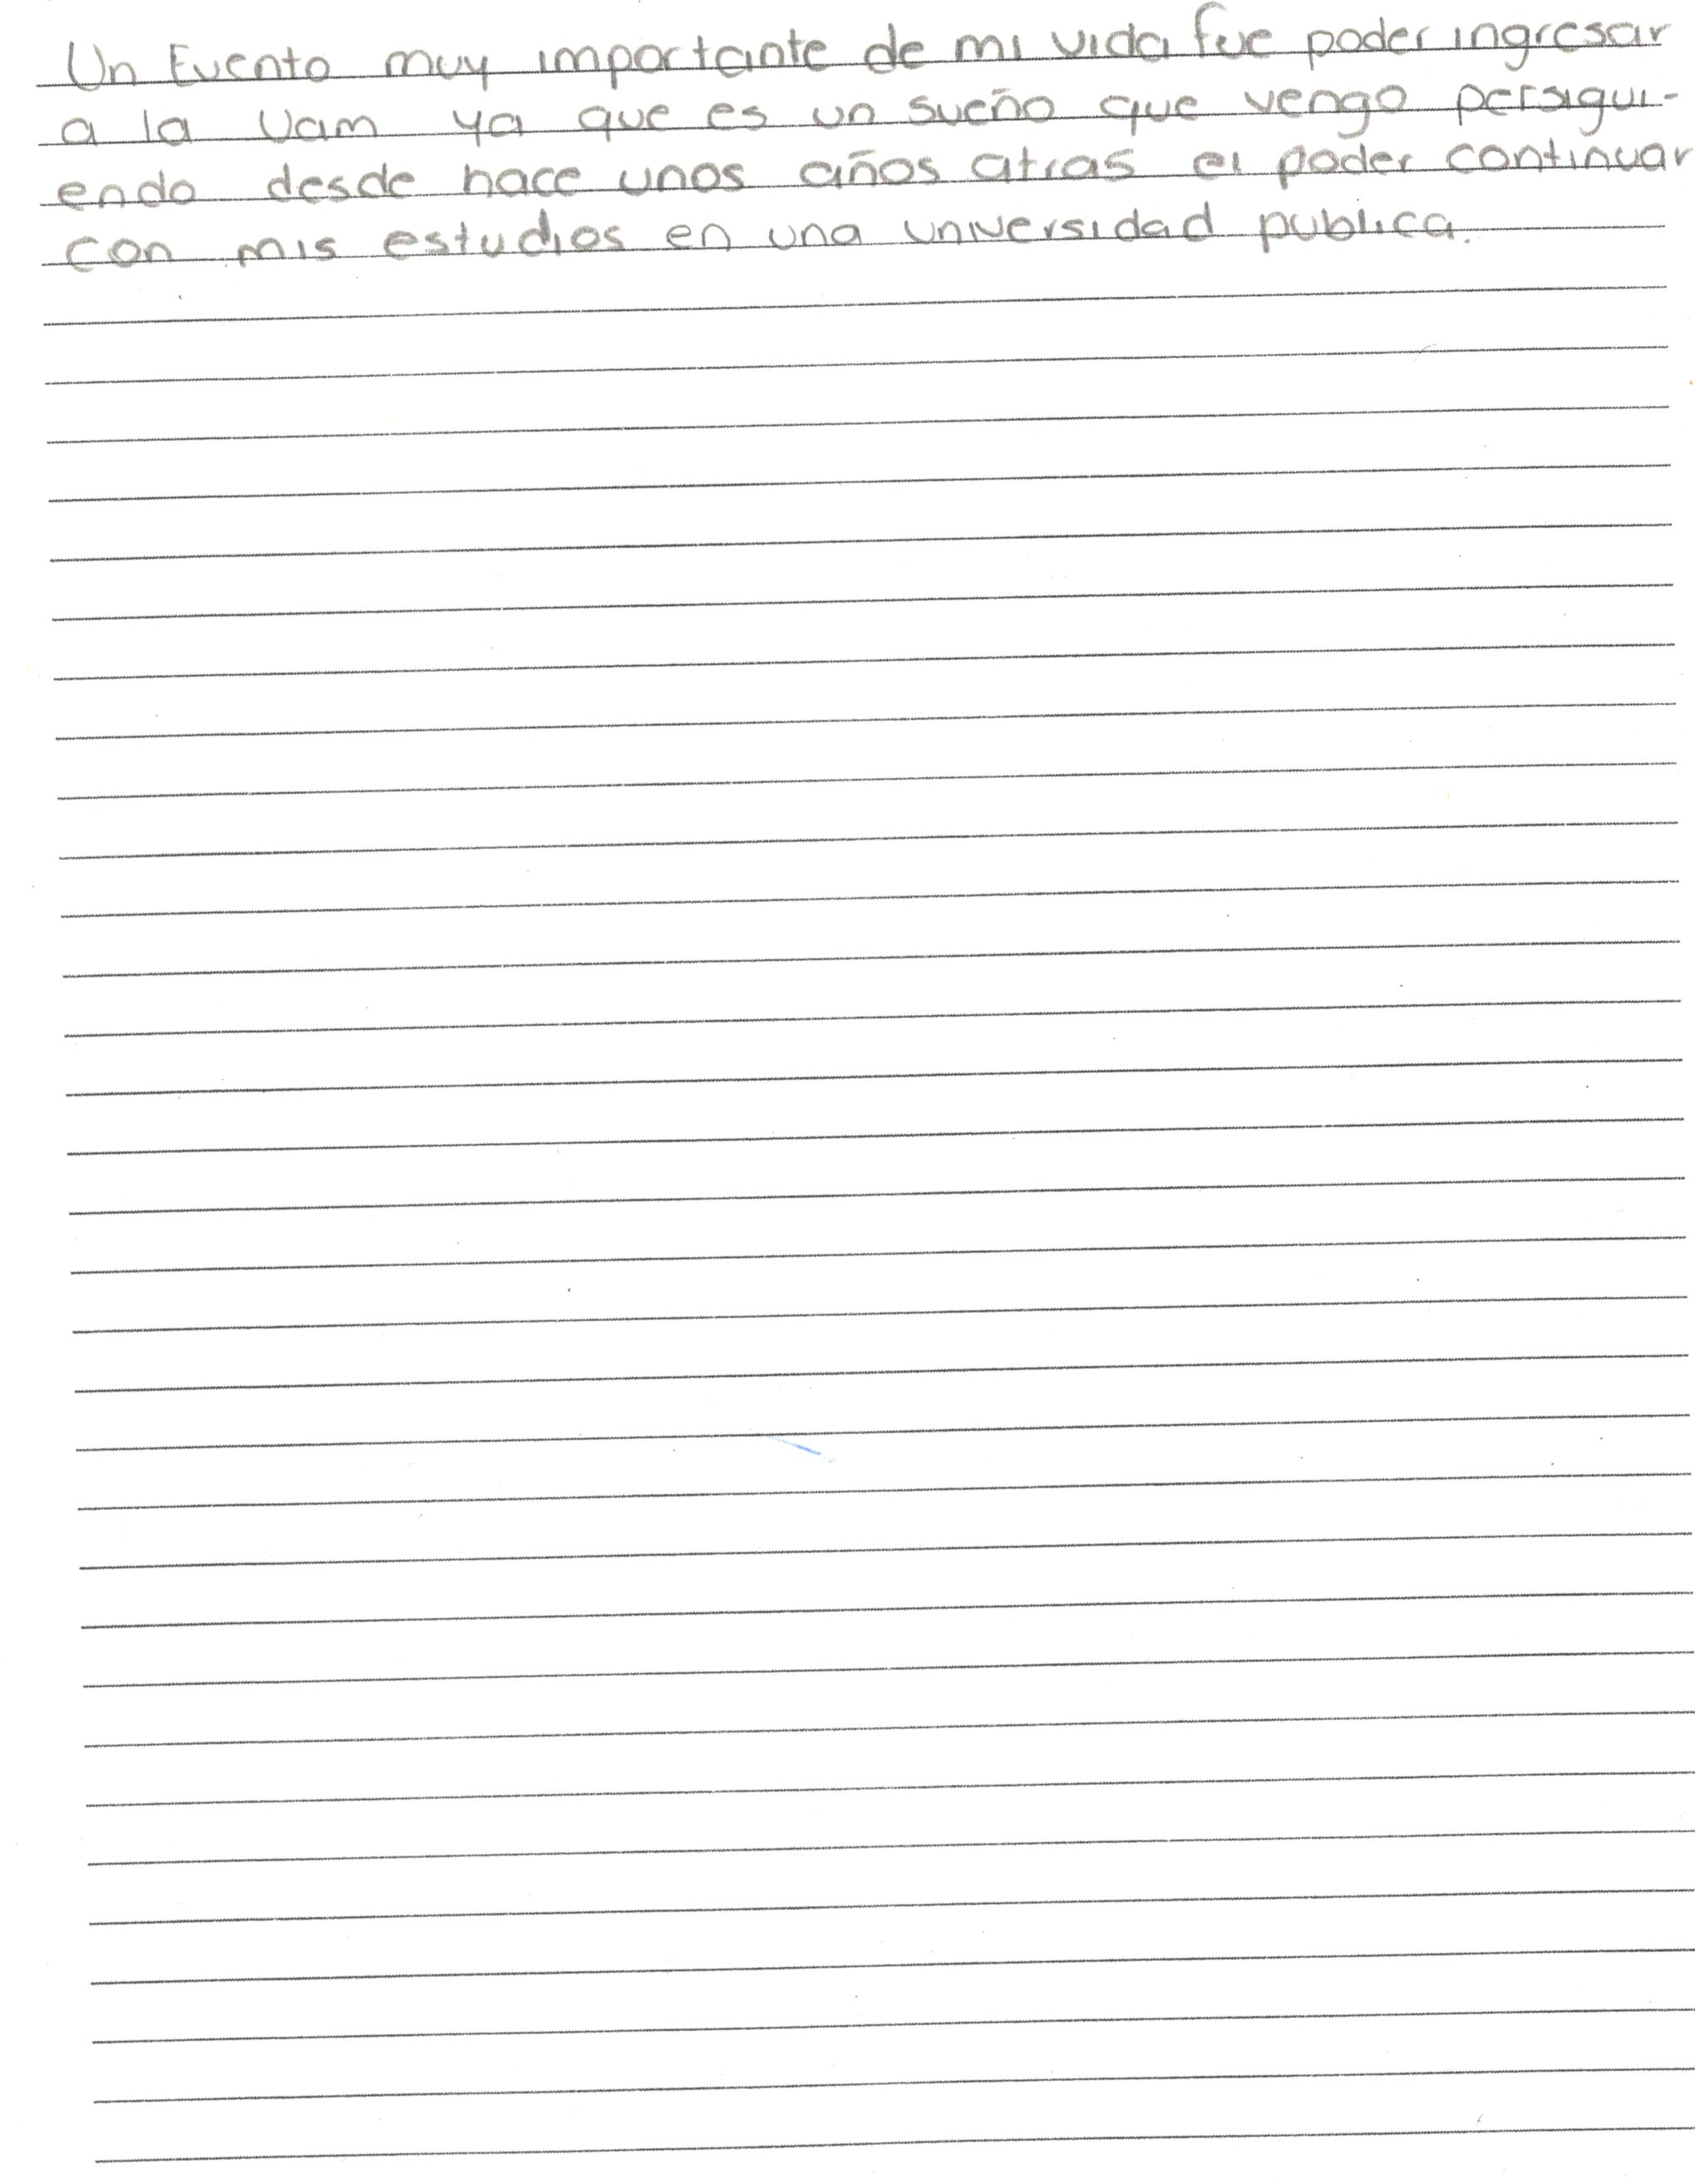 Un Evento muy importante de mi vida fue poder ingresar
a la Uam ya que es un sueño que vengo persigui-
endo desde hace unos años atras el poder continuar
con mis estudios en una universidad publica.